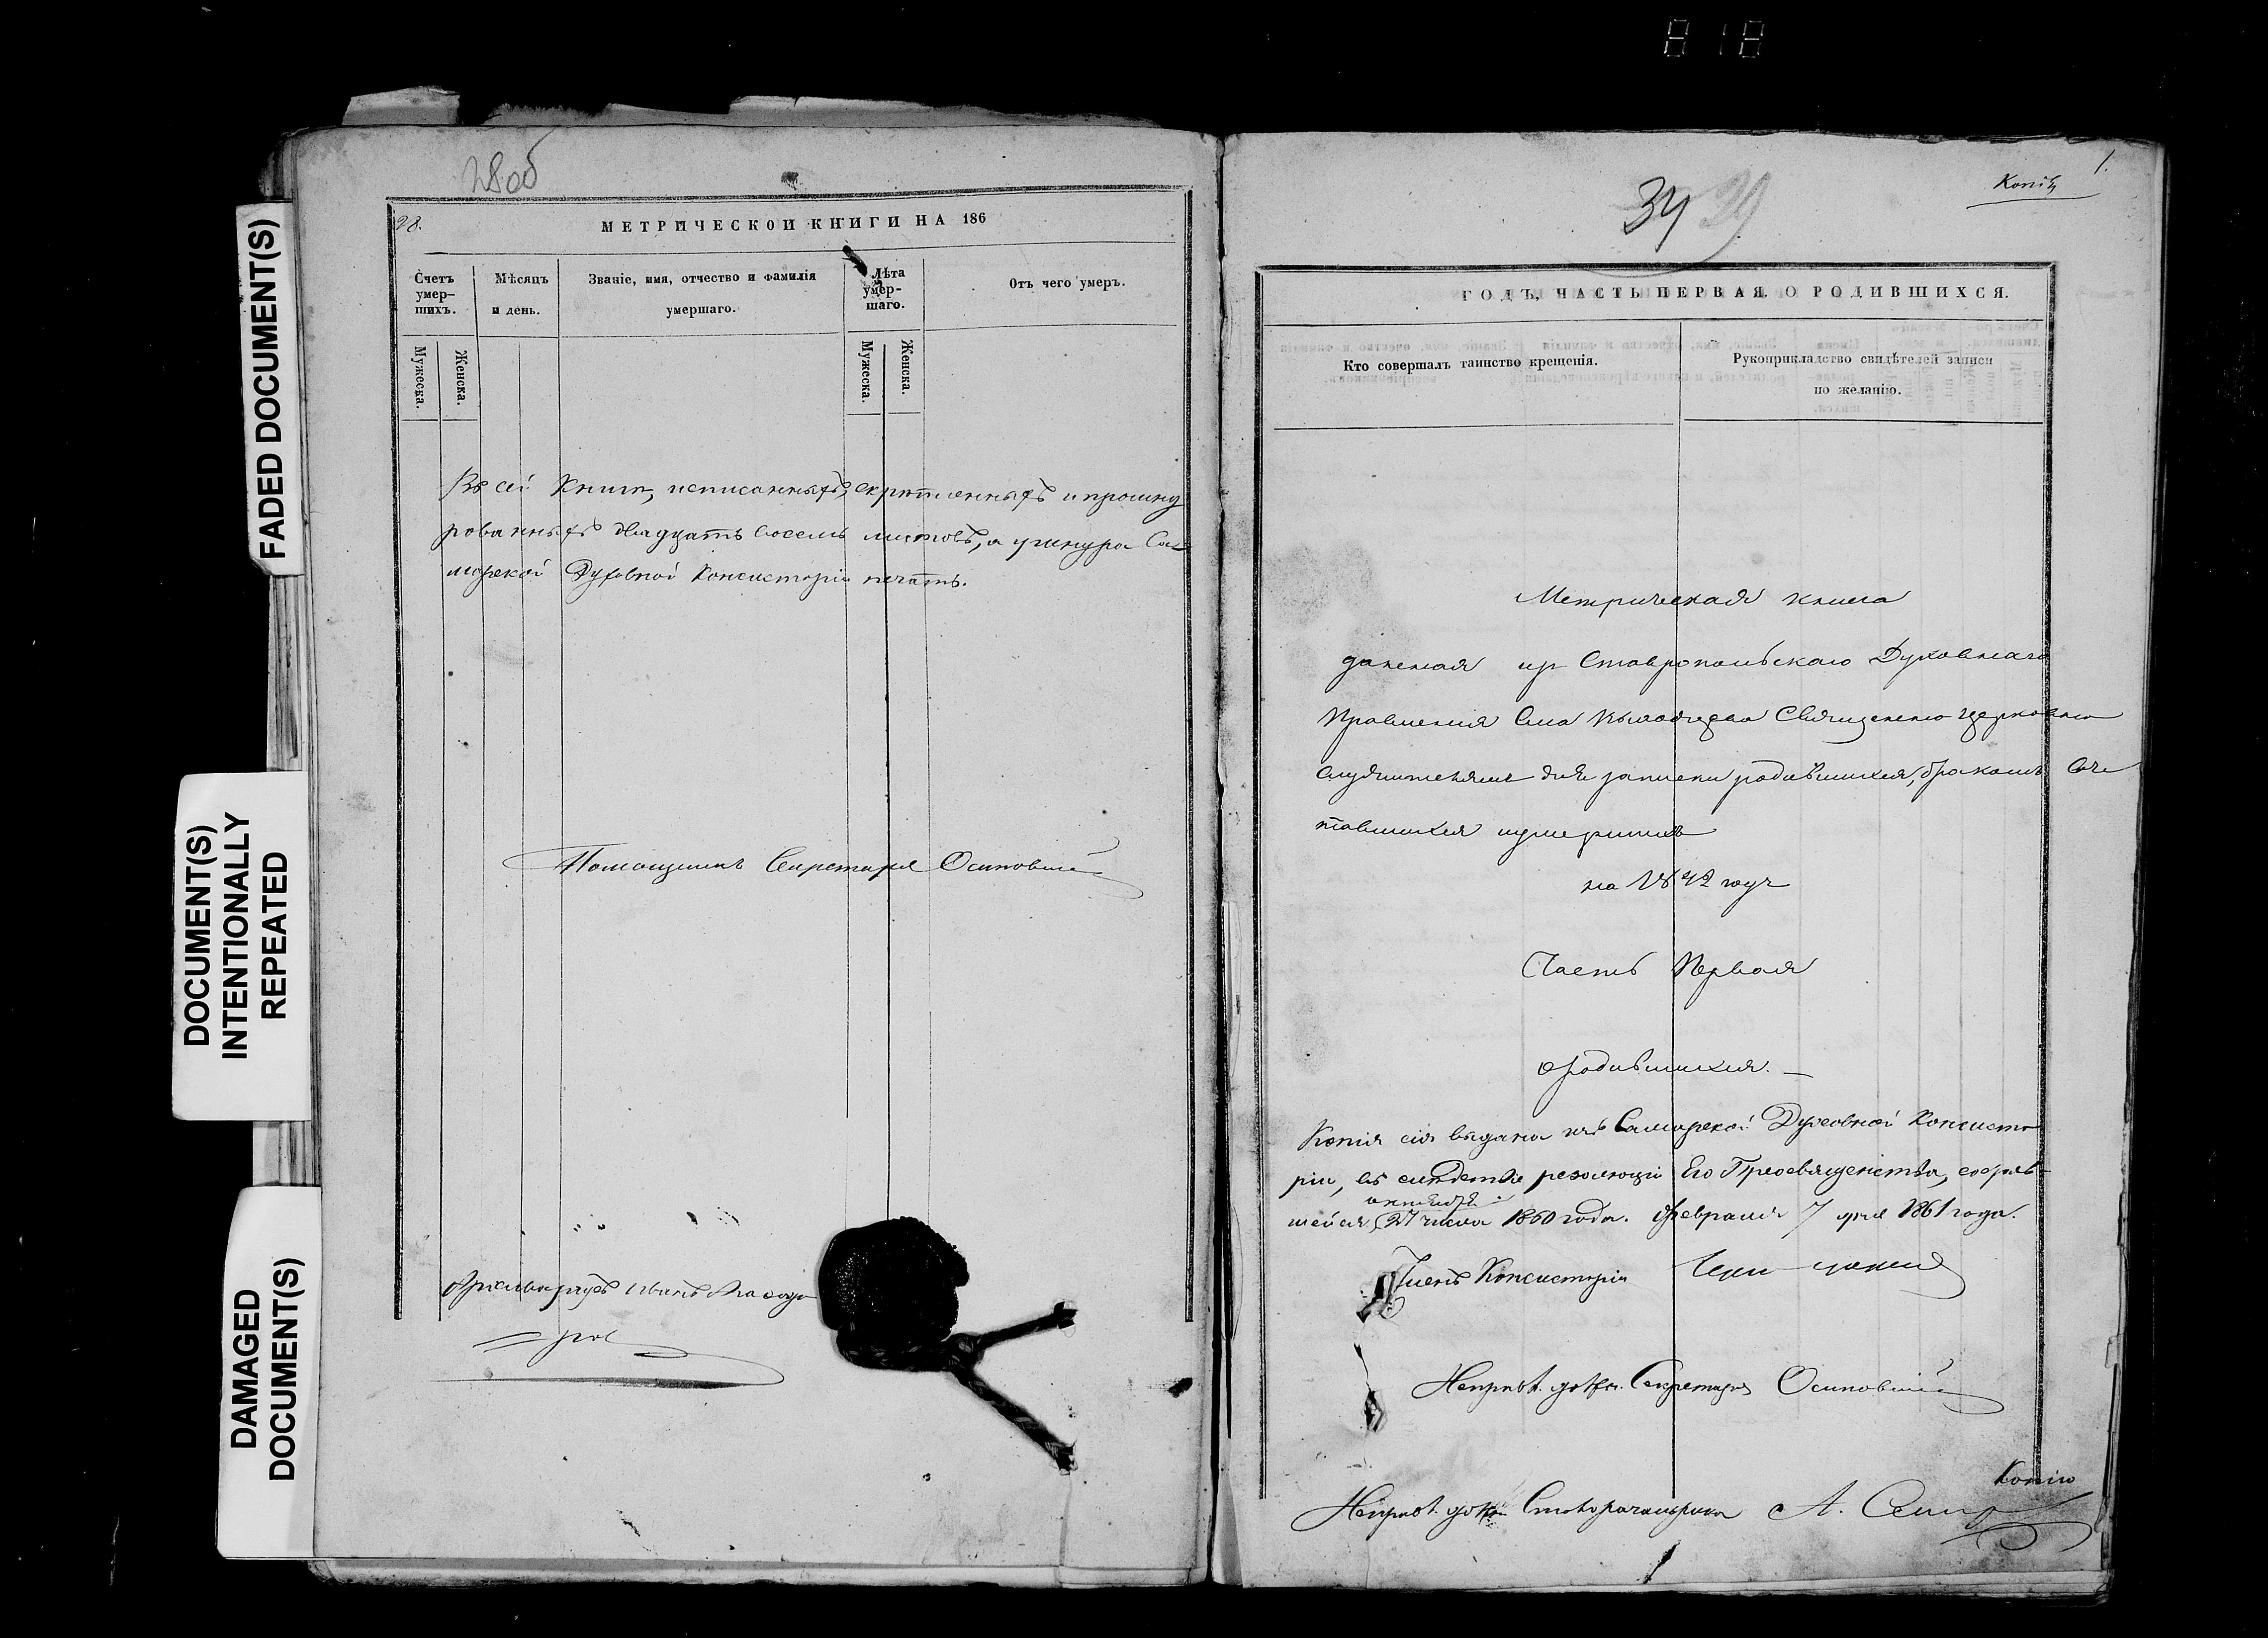 818
FADED DOCUMENT(S)
DOCUMENT(S)
INTENTIONALLY
REPEATED
DAMAGED
DOCUMENT(S)
28об
28.
МЕТРИЧЕСКОИ КНИГИ НА 186
Счетъ умер- шихъ.
Мѣсяцъ и день.
Званіе, имя, отчество и фамилія умершаго.
Лѣта умер- шаго.
Отъ чего умеръ.
Мужеска.
Женска.
Мужеска.
Женска.
Въ сей Книгѣ, исписанныхъ, скрѣпленныхъ и прошну
рованныхъ двадцать восемь листовъ, а у шнура Са-
марской Духовной Консисторіи печать.
Помощникъ Секретаря Осиповскій
Иванъ
1.
Копія
34 29
ГОДЪ, ЧАСТЬ ПЕРВАЯ. О РОДИВШИХСЯ.
Кто совершалъ таинство крещенія.
Рукоприкладство свидѣтелей записи
по желанію.
Метрическая книга
данная изъ Ставропольскаго Духовнаго
Правленія Села Священно церковно
служителямъ для записки родившихся, бракомъ соче
тавшихся и умершихъ
на 1842 годъ
Часть Первая
о родившихся. —
Копія сія выдана изъ Самарской Духовной Консисто
ріи, въ слѣдствіе резолюціи Его Преосвященства, состояв-
октября
шейся 27 числа 1860 года. Февраля 7 дня 1861 года.
Членъ Консисторіи
Исправл. должн. Секретаря Осиповскій
Копію
Исправл. должн. Столоначальника А.